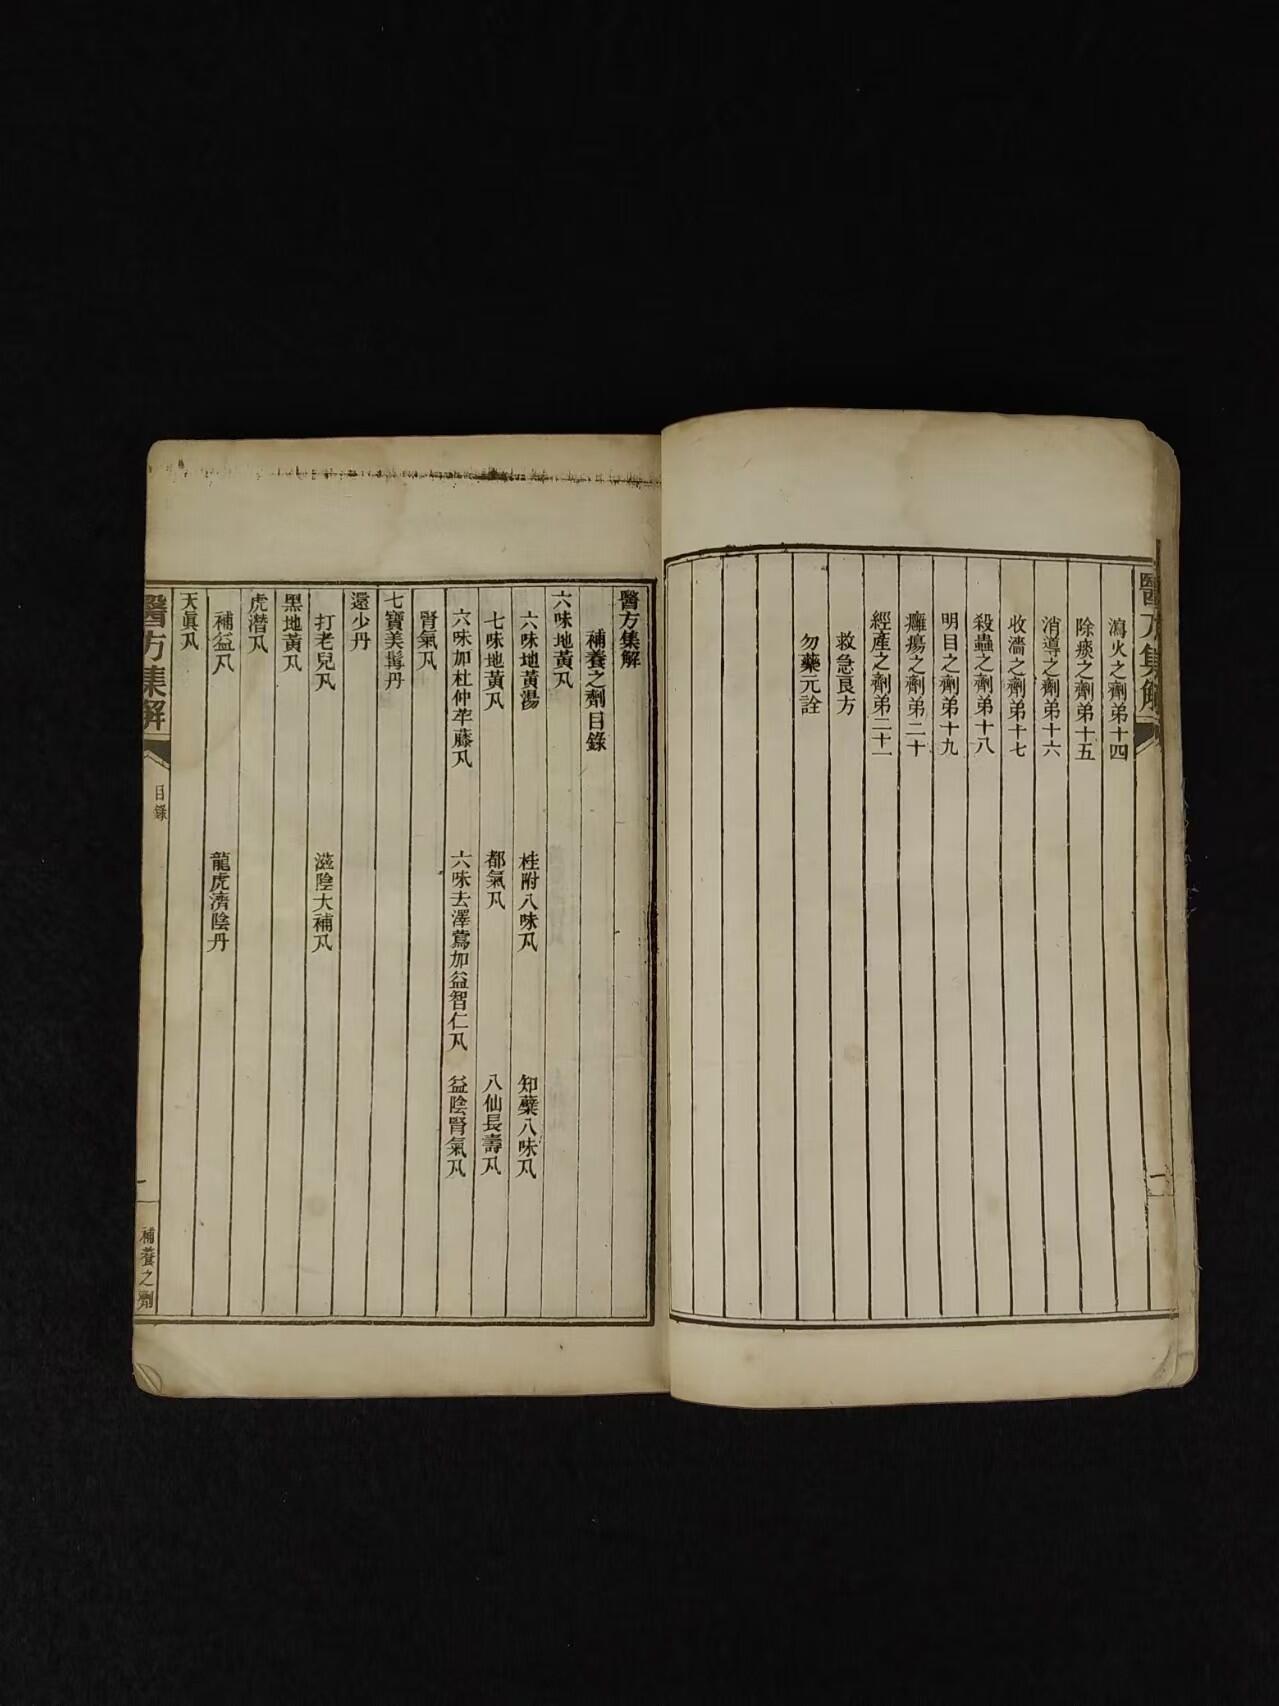 醫方集解
瀉火之劑弟十四
除痰之劑弟十五
消導之劑弟十六
收濇之劑弟十七
殺蟲之劑弟十八
明目之劑弟十九
癰瘍之劑弟二十
經產之劑弟二十一
救急良方
勿藥元詮
一
醫方集解
補養之劑目錄
六味地黃丸
六味地黃湯 桂附八味丸 知蘗八味丸
七味地黃丸 都氣丸 八仙長壽丸
六味加杜仲牽藤丸 六味去澤蕮加益智仁丸 益陰腎氣丸
腎氣丸
七寶美髯丹
還少丹
打老兒丸 滋陰大補丸
黑地黃丸
虎潛丸
補益丸 龍虎濟陰丹
天眞丸
醫方集解
目錄
一
補養之劑